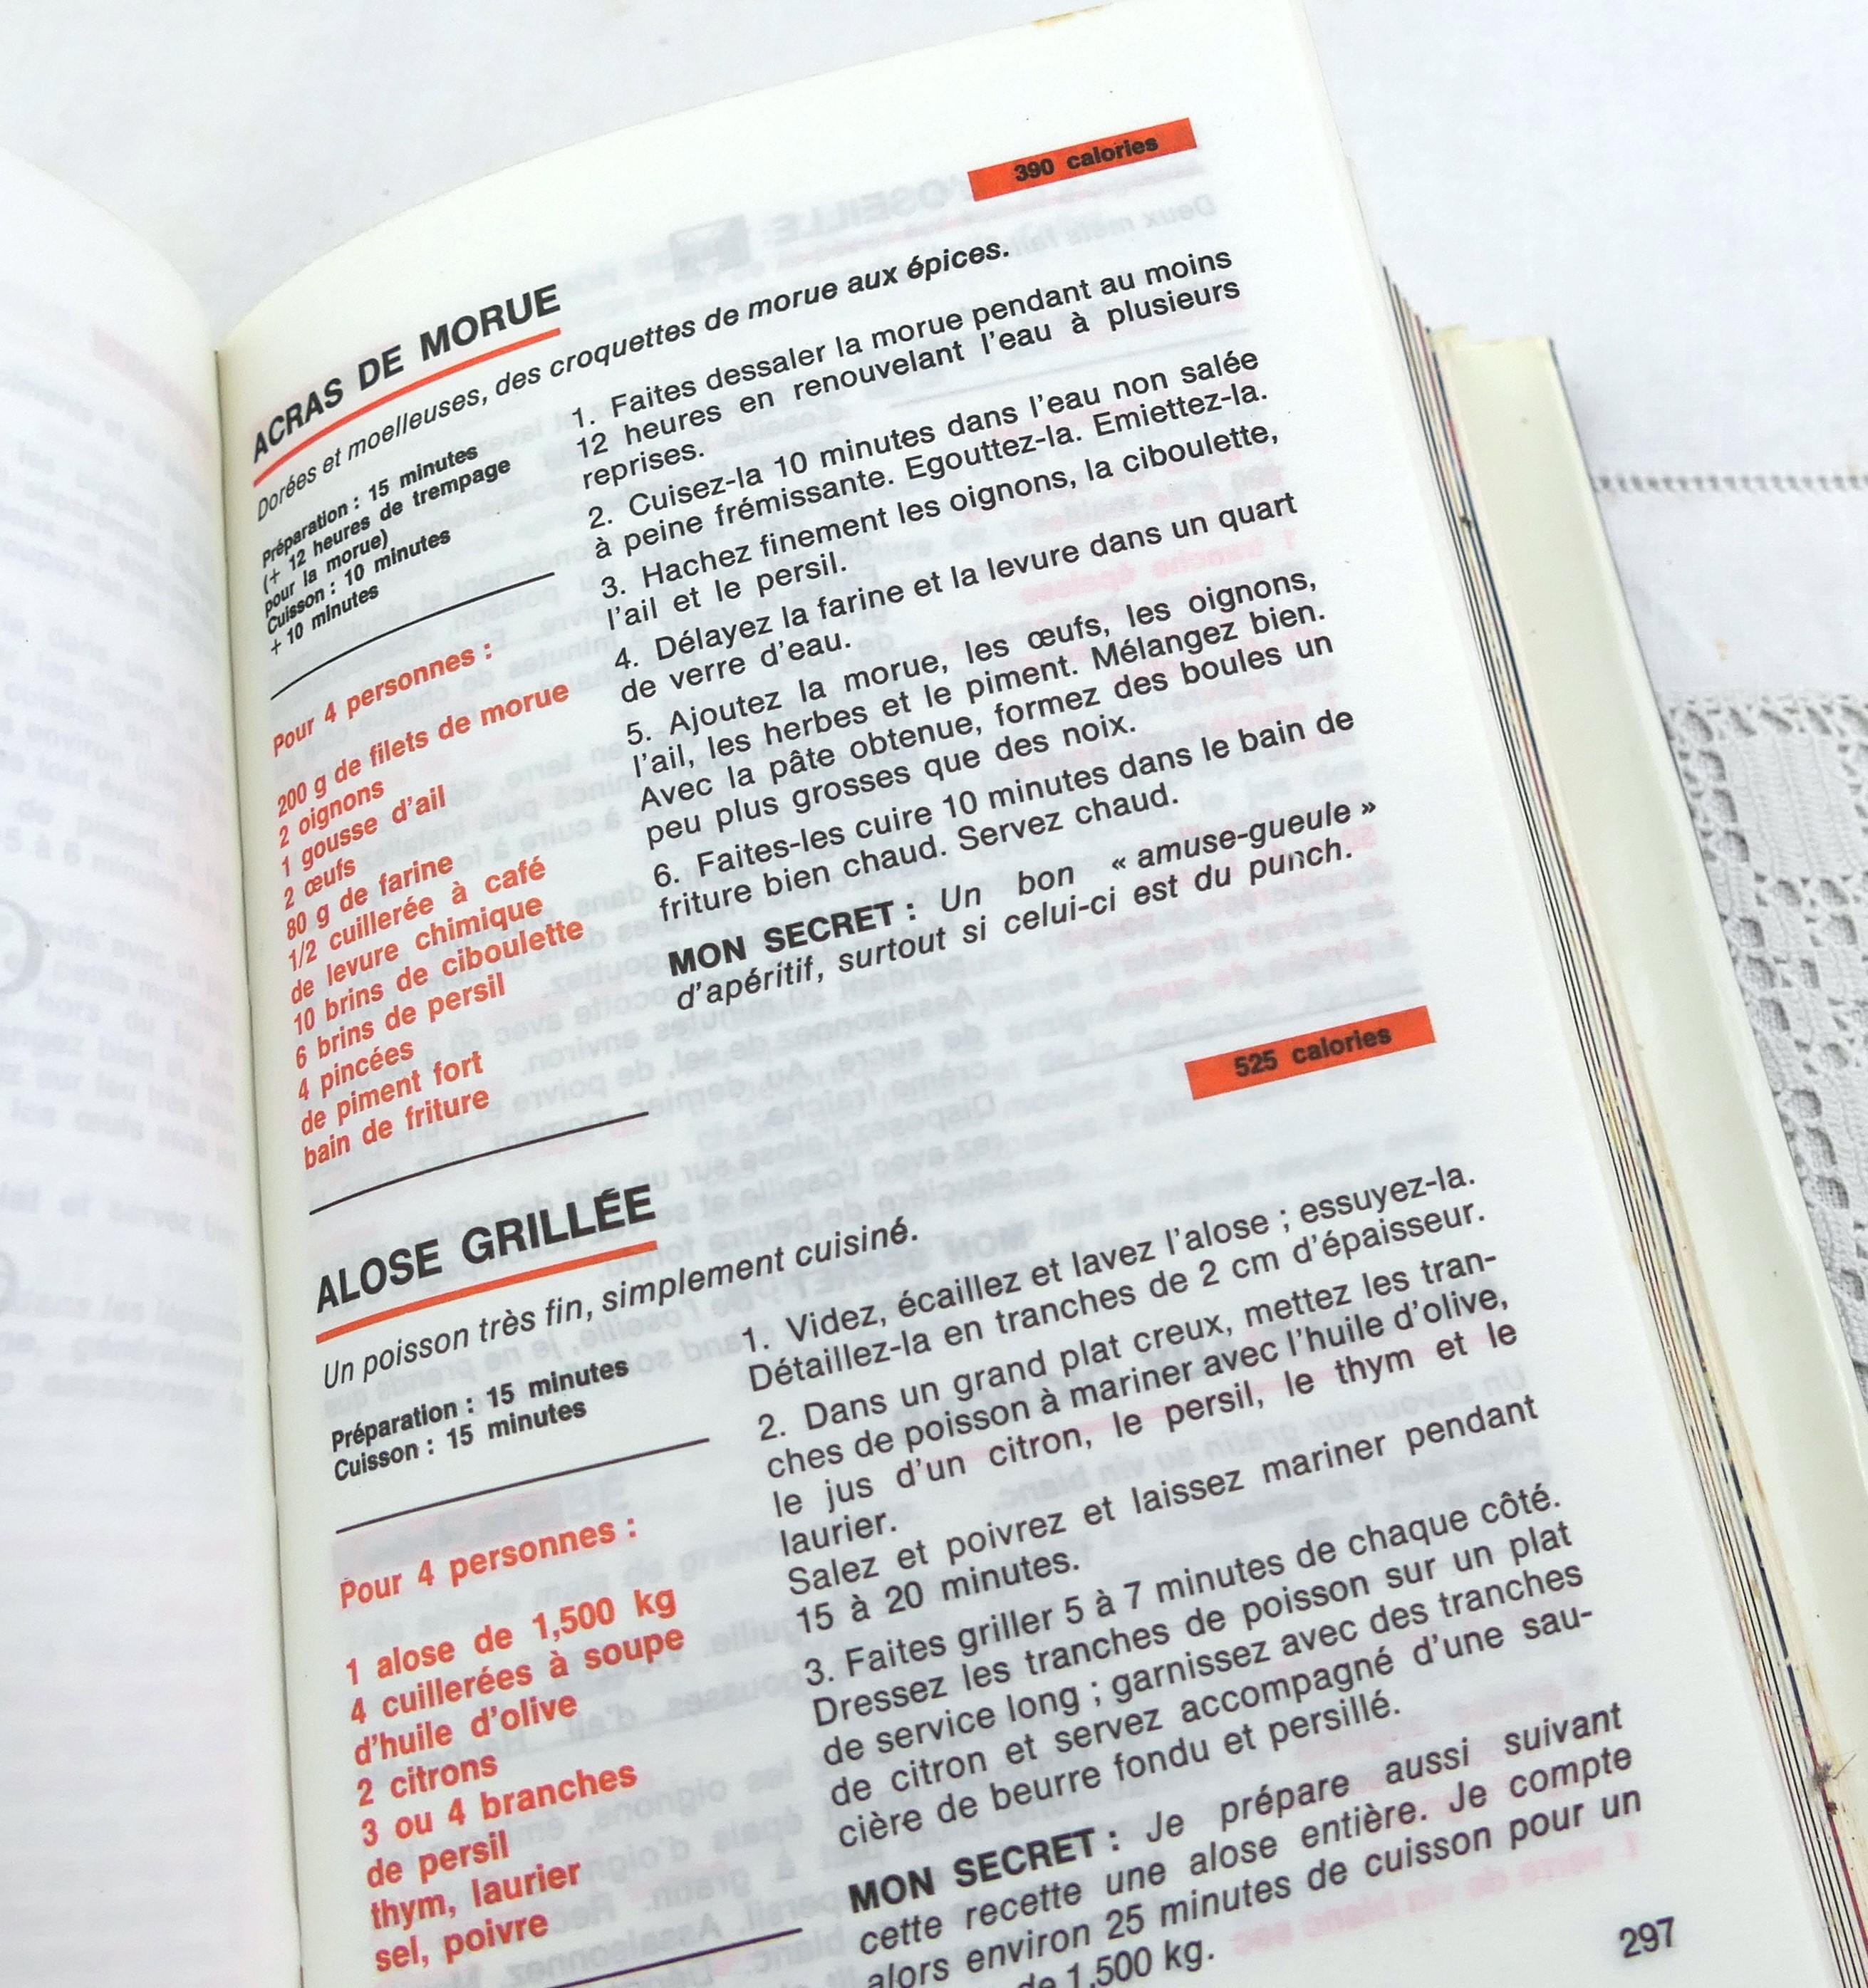 390 calories
ACRAS DE MORUE
Dorées et moelleuses, des croquettes de morue aux épices.
Préparation : 15 minutes
(+ 12 heures de trempage
pour la morue)
Cuisson : 10 minutes
+ 10 minutes
Pour 4 personnes :
200 g de filets de morue
2 oignons
1 gousse d'ail
2 œufs
80 g de farine
1/2 cuillerée à café
de levure chimique
10 brins de ciboulette
6 brins de persil
4 pincées
de piment fort
bain de friture
1. Faites dessaler la morue pendant au moins
12 heures en renouvelant l'eau à plusieurs
reprises.
2. Cuisez-la 10 minutes dans l'eau non salée
à peine frémissante. Egouttez-la. Emiettez-la.
3. Hachez finement les oignons, la ciboulette,
l'ail et le persil.
4. Délayez la farine et la levure dans un quart
de verre d'eau.
5. Ajoutez la morue, les œufs, les oignons,
l'ail, les herbes et le piment. Mélangez bien.
Avec la pâte obtenue, formez des boules un
peu plus grosses que des noix.
6. Faites-les cuire 10 minutes dans le bain de
friture bien chaud. Servez chaud.
MON SECRET : Un bon « amuse-gueule »
d'apéritif, surtout si celui-ci est du punch.
525 calories
ALOSE GRILLÉE
Un poisson très fin, simplement cuisiné.
Préparation : 15 minutes
Cuisson : 15 minutes
Pour 4 personnes :
1 alose de 1,500 kg
4 cuillerées à soupe
d'huile d'olive
2 citrons
3 ou 4 branches
de persil
thym, laurier
sel, poivre
1. Videz, écaillez et lavez l'alose ; essuyez-la.
Détaillez-la en tranches de 2 cm d'épaisseur.
2. Dans un grand plat creux, mettez les tran-
ches de poisson à mariner avec l'huile d'olive,
le jus d'un citron, le persil, le thym et le
laurier.
Salez et poivrez et laissez mariner pendant
15 à 20 minutes.
3. Faites griller 5 à 7 minutes de chaque côté.
Dressez les tranches de poisson sur un plat
de service long ; garnissez avec des tranches
de citron et servez accompagné d'une sau-
cière de beurre fondu et persillé.
MON SECRET : Je prépare aussi suivant
cette recette une alose entière. Je compte
alors environ 25 minutes de cuisson pour un
de 1,500 kg.
297